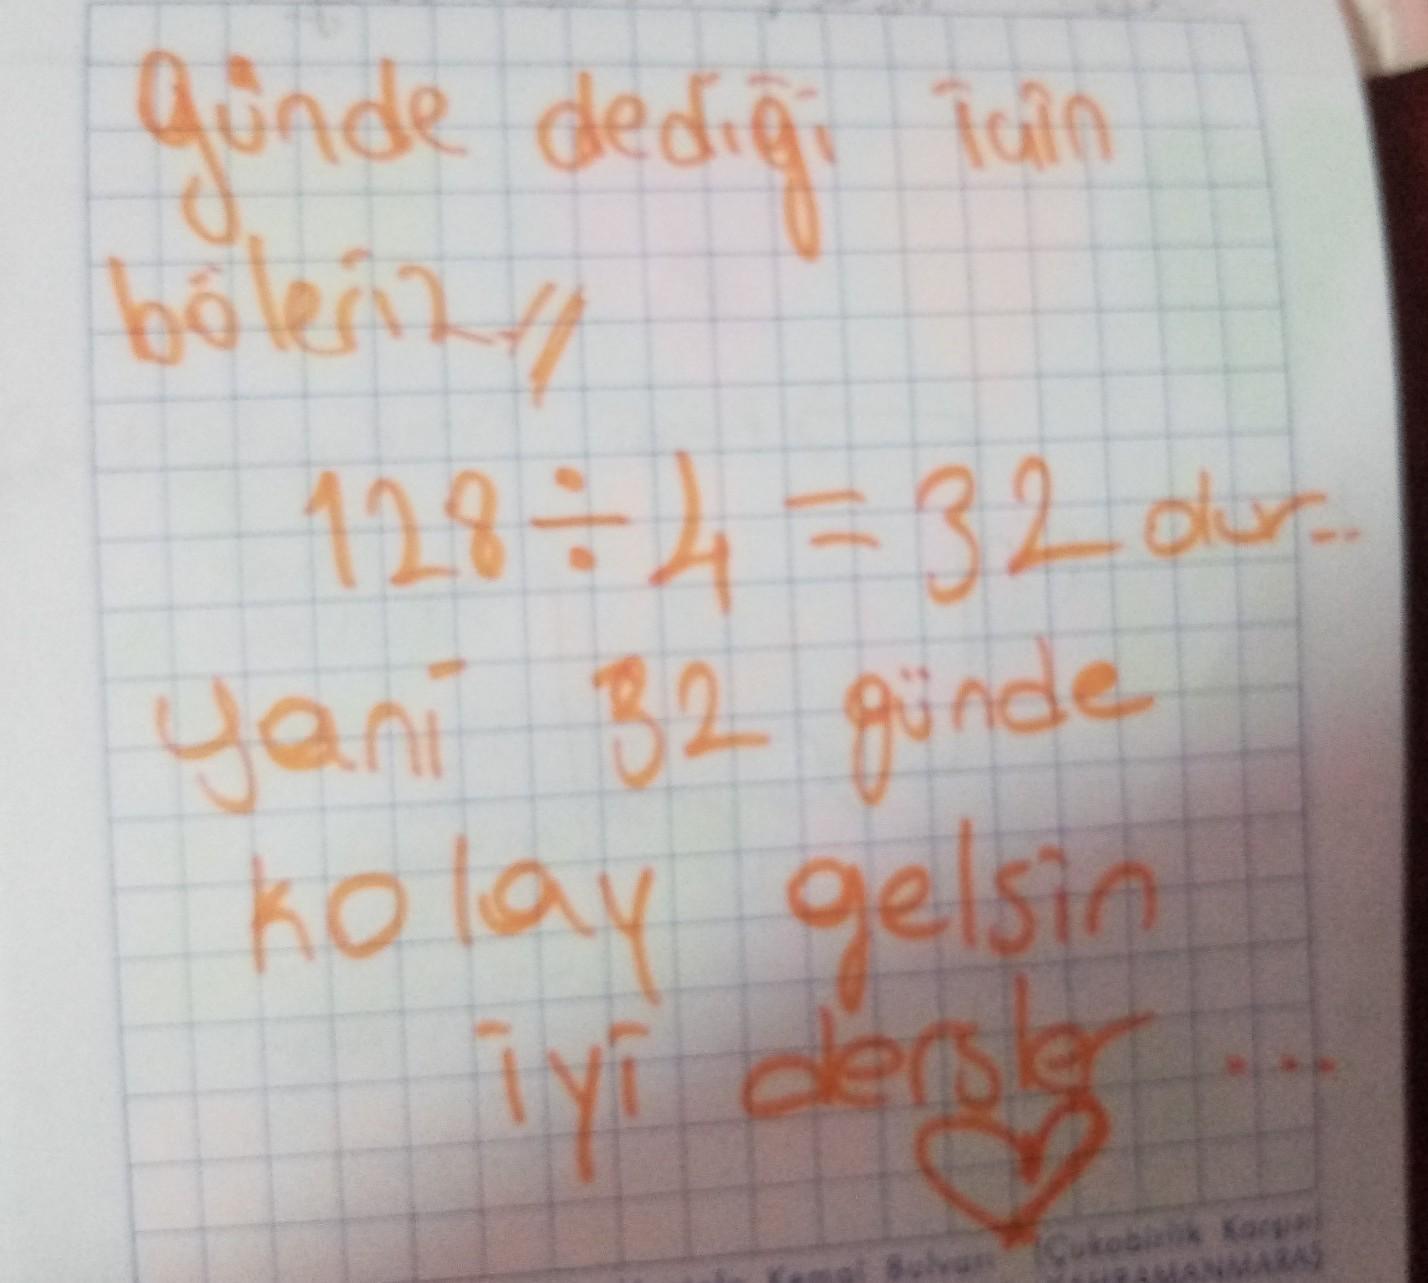 günde dediği için
böleriz //
128 ÷ 4 = 32 dur...
yani 32 günde
kolay gelsin
iyi dersler ...
Kemal Bulvarı (Çukobirlik Karşısı)
KAHRAMANMARAŞ